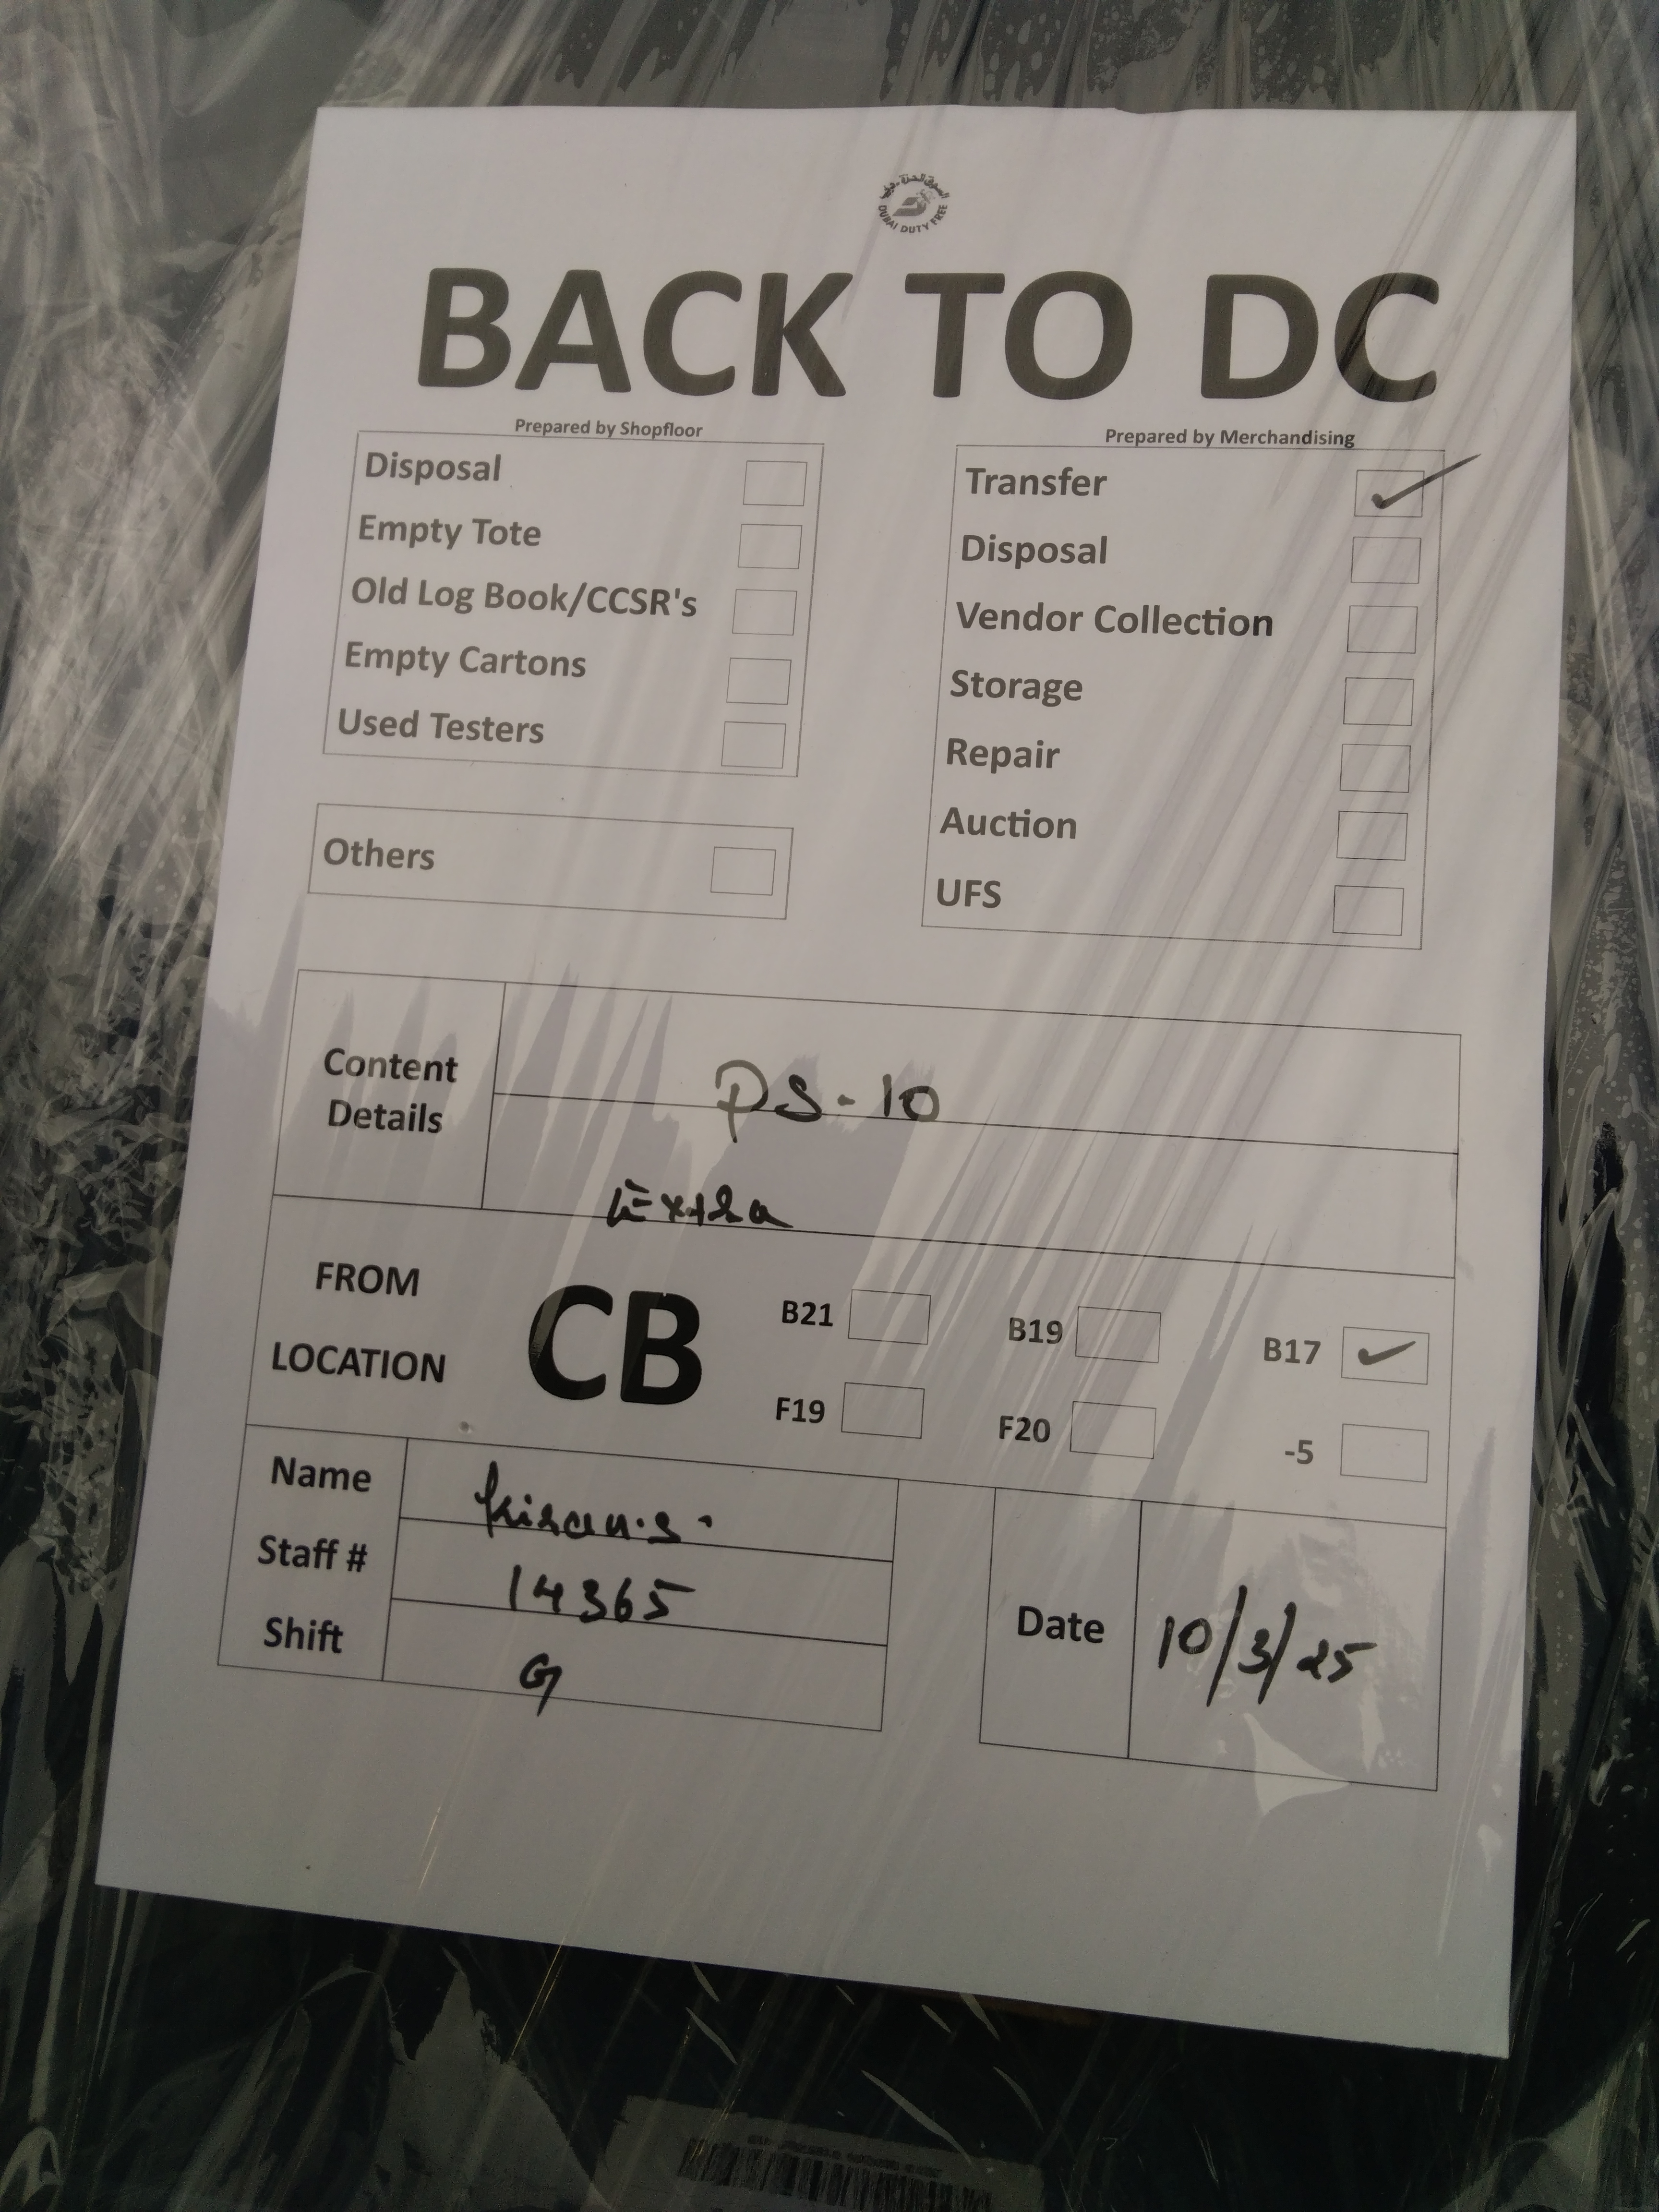 السوق الحرة - دبي
DUBAI DUTY FREE
BACK TO DC
Prepared by Shopfloor
Disposal
Empty Tote
Old Log Book/CCSR's
Empty Cartons
Used Testers
Others
Prepared by Merchandising
Transfer ✓
Disposal
Vendor Collection
Storage
Repair
Auction
UFS
Content Details
PS-10
Extra
FROM LOCATION
CB
B21 B19 B17 ✓
F19 F20 -5
Name kiran.s.
Staff # 14365
Shift G
Date 10/3/25